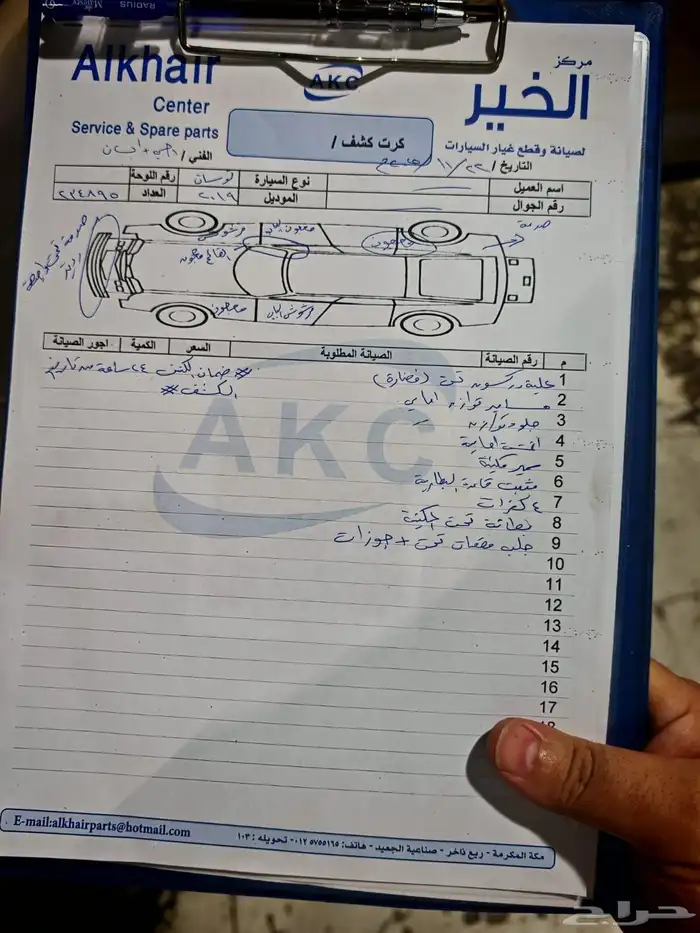 RADIUS
Alkhair
Center
Service & Spare parts
AKC
مركز
الخير
لصيانة وقطع غيار السيارات
كرت كشف /
التاريخ / ٢٢ / ١١
الفني /
اسم العميل
نوع السيارة
توسان
رقم اللوحة
رقم الجوال
الموديل
٢٠١٩
العداد
٢٣٤٨٩٥
صدمة
معجون
مرشوش
معجون
م
رقم الصيانة
الصيانة المطلوبة
السعر
الكمية
اجور الصيانة
# ضمان الكشف ٢٤ ساعة من تاريخ
الكشف #
1 علبة دركسون تحت (فضارة)
2 مسامير توازن امامي
3 جلود توازن
4
5 سير مكينة
6 مثبت قاعدة البطارية
7 ٤ كفرات
8 بطانة تحت المكينة
9 جلب مقصات تحت + جوزات
10
11
12
13
14
15
16
17
AKC
E-mail:alkhairparts@hotmail.com
مكة المكرمة - ربع ذاخر - صناعية الجعيد - هاتف: ٠١٢٥٧٥٥١٦٥ - تحويله : ١٠٣
حراج